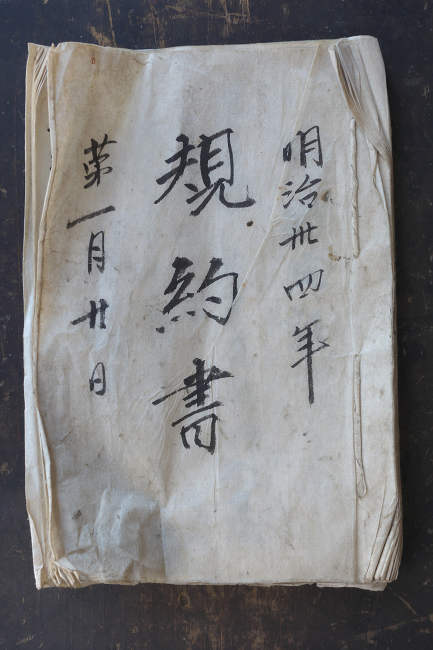 明治卅四年
規約書
第一月廿日